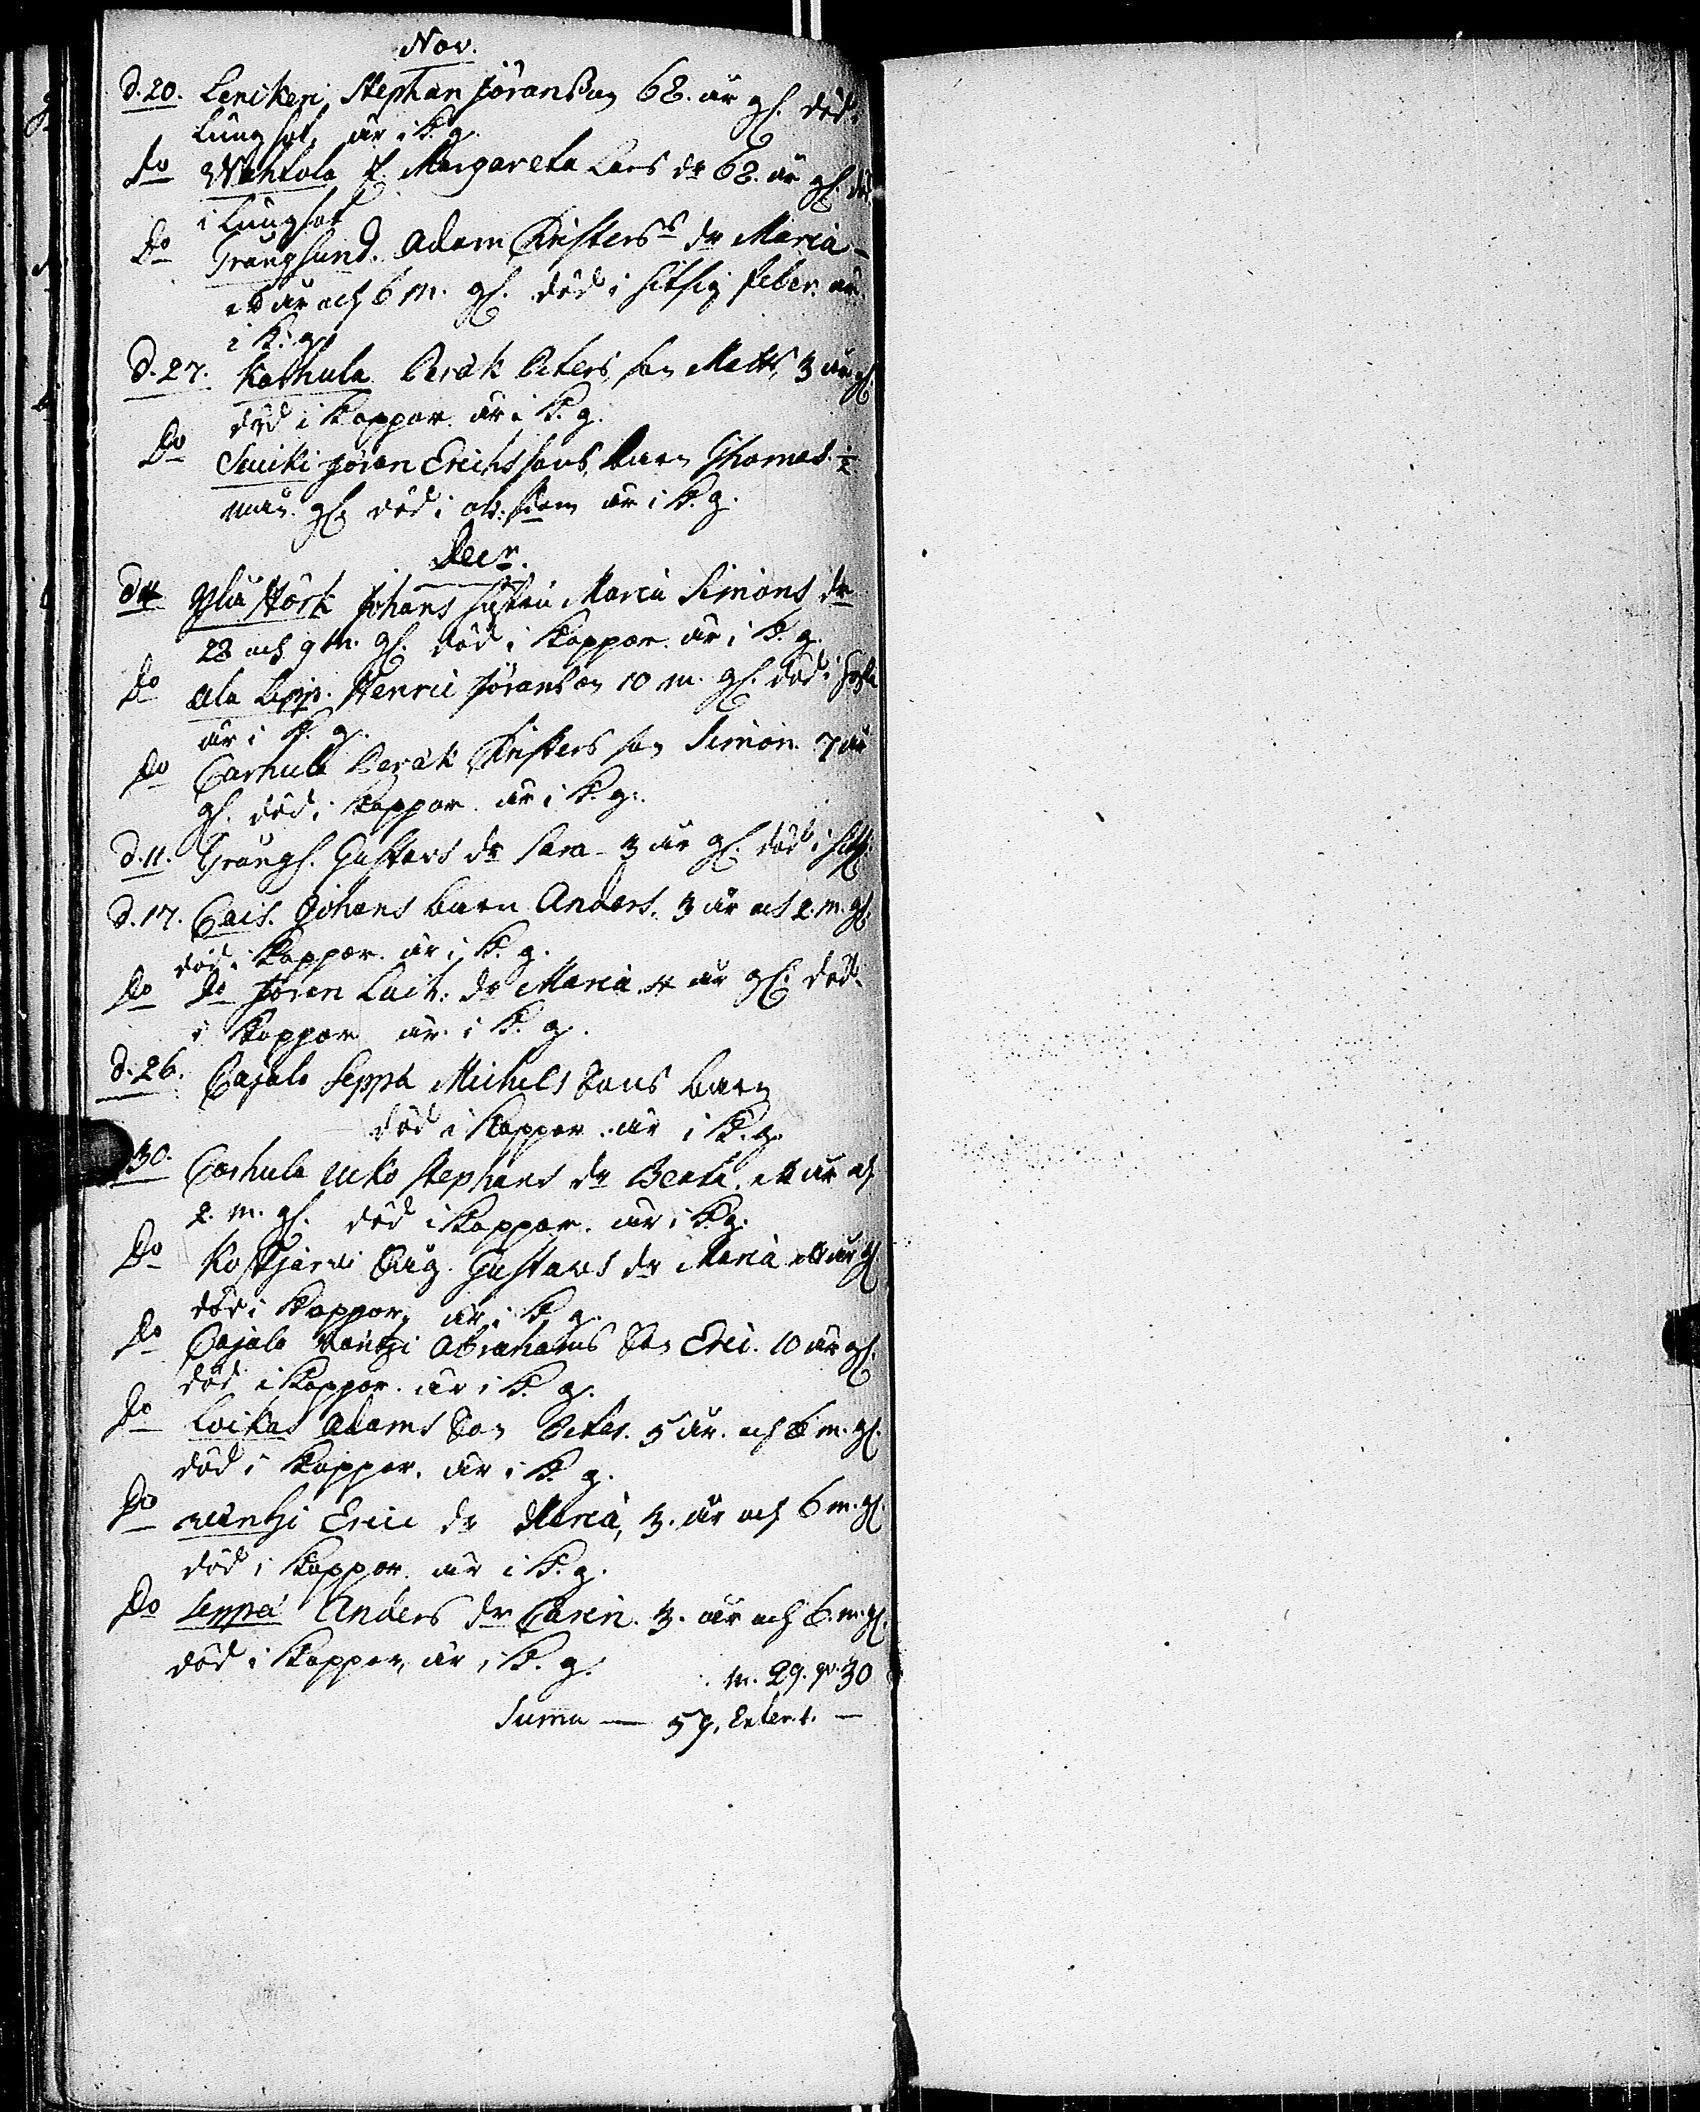 Nov.
d. 20. Lenikeri Stephan Jöransson 68. år gl. död i
Lungsot, är i K. g.
Do Wahtola f. Margareta Lars dr 68. år gl. död
i Lungsot
Do Trångsund. Adam Christers dr Maria
ett år och 6 m. gl. död i hitsig feber. är
i K. g.
d. 27. Karhula Perák Peters son Matts 3 år gl.
död i Koppor är i K. g.
Do Suuiki Jöran Erichssons barn Thomas ½
mån. gl. död i är i K. g.
Decr.
d 4 Störk Johans hustru Maria Simons dr
28 och 9 m. gl. död i Koppor. är i K. g.
Do Ala Lepp. Henric Jöransson 10 m. gl. död i
är i K. g.
Do Carhula Perák Christers son Simon 7 år
gl. död i Koppor. är i K. g.
d. 11. Trångs. Gustavs dr Sara 3 år gl. död i hits.
d. 17. Cais. Johans barn Anders. 3 år och 2. m. gl.
död i Koppor. är i K. g.
Do Do Jören Laih. dr Maria 4 år gl. död
i Koppor är i K. g.
d. 26. Cajala Seppä Michels Sons barn
död i Koppor. är i K. g.
30. Carhula Ucko Stephans dr Beata. ett år och
2. m. gl. död i Koppor. är i K. g.
Do Koskjärwi Aug. Gustavs dr Maria ett år gl
död i Koppor, är i K. g.
Do Cajala Wäntzi Abrahams Son Eric. 10 år gl.
död i Koppor. är i K. g.
Do Loikas Adams Son Peter. 5 år. och 6 m. gl.
död i Koppor. är i K. g.
Do Wäntzi Erici dr Maria, 3. år och 6 m. gl.
död i Koppor är i K. g.
Do Seppä Anders dr Carin. 3. år och 6. m. gl.
död i Koppor, är i K. g.
m. 29. qv. 30
Suma — 59. Exter. 1. —